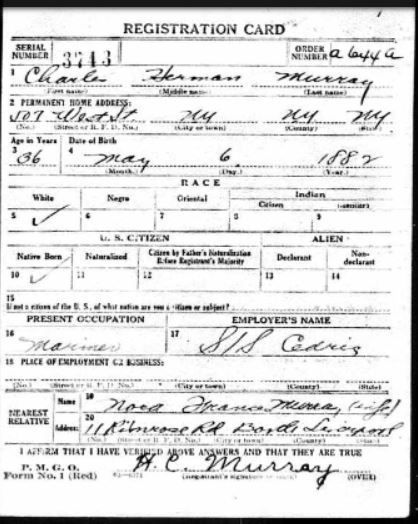 REGISTRATION CARD
SERIAL NUMBER 3743 ORDER NUMBER a 644 a
1 Charles Herman Murray
(First name) (Middle name) (Last name)
2 PERMANENT HOME ADDRESS:
507 West St NY NY NY
(No.) (Street or R. F. D. No.) (City or town) (County) (State)
Age in Years Date of Birth
3 36 4 May 6 1882
(Month.) (Day.) (Year.)
RACE
White Negro Oriental Indian
Citizen
5 ✓ 6 7 8 9
U. S. CITIZEN ALIEN
Native Born Naturalized Citizen by Father's Naturalization Before Registrant's Majority Declarant Non-declarant
10 ✓ 11 12 13 14
15
If not a citizen of the U. S., of what nation are you a citizen or subject?
PRESENT OCCUPATION EMPLOYER'S NAME
16 Mariner 17 S/S Cedric
18 PLACE OF EMPLOYMENT OR BUSINESS:
(No.) (Street or R. F. D. No.) (City or town) (County) (State)
NEAREST RELATIVE Name 19 Nora Frances Murray (wife)
Address: 20 11 Rd Bootle Liverpool
(No.) (Street or R. F. D. No.) (City or town) (County) (State)
I AFFIRM THAT I HAVE VERIFIED ABOVE ANSWERS AND THAT THEY ARE TRUE
P. M. G. O.
Form No. 1 (Red) H. C. Murray
(Registrant's signature or mark) (OVER)